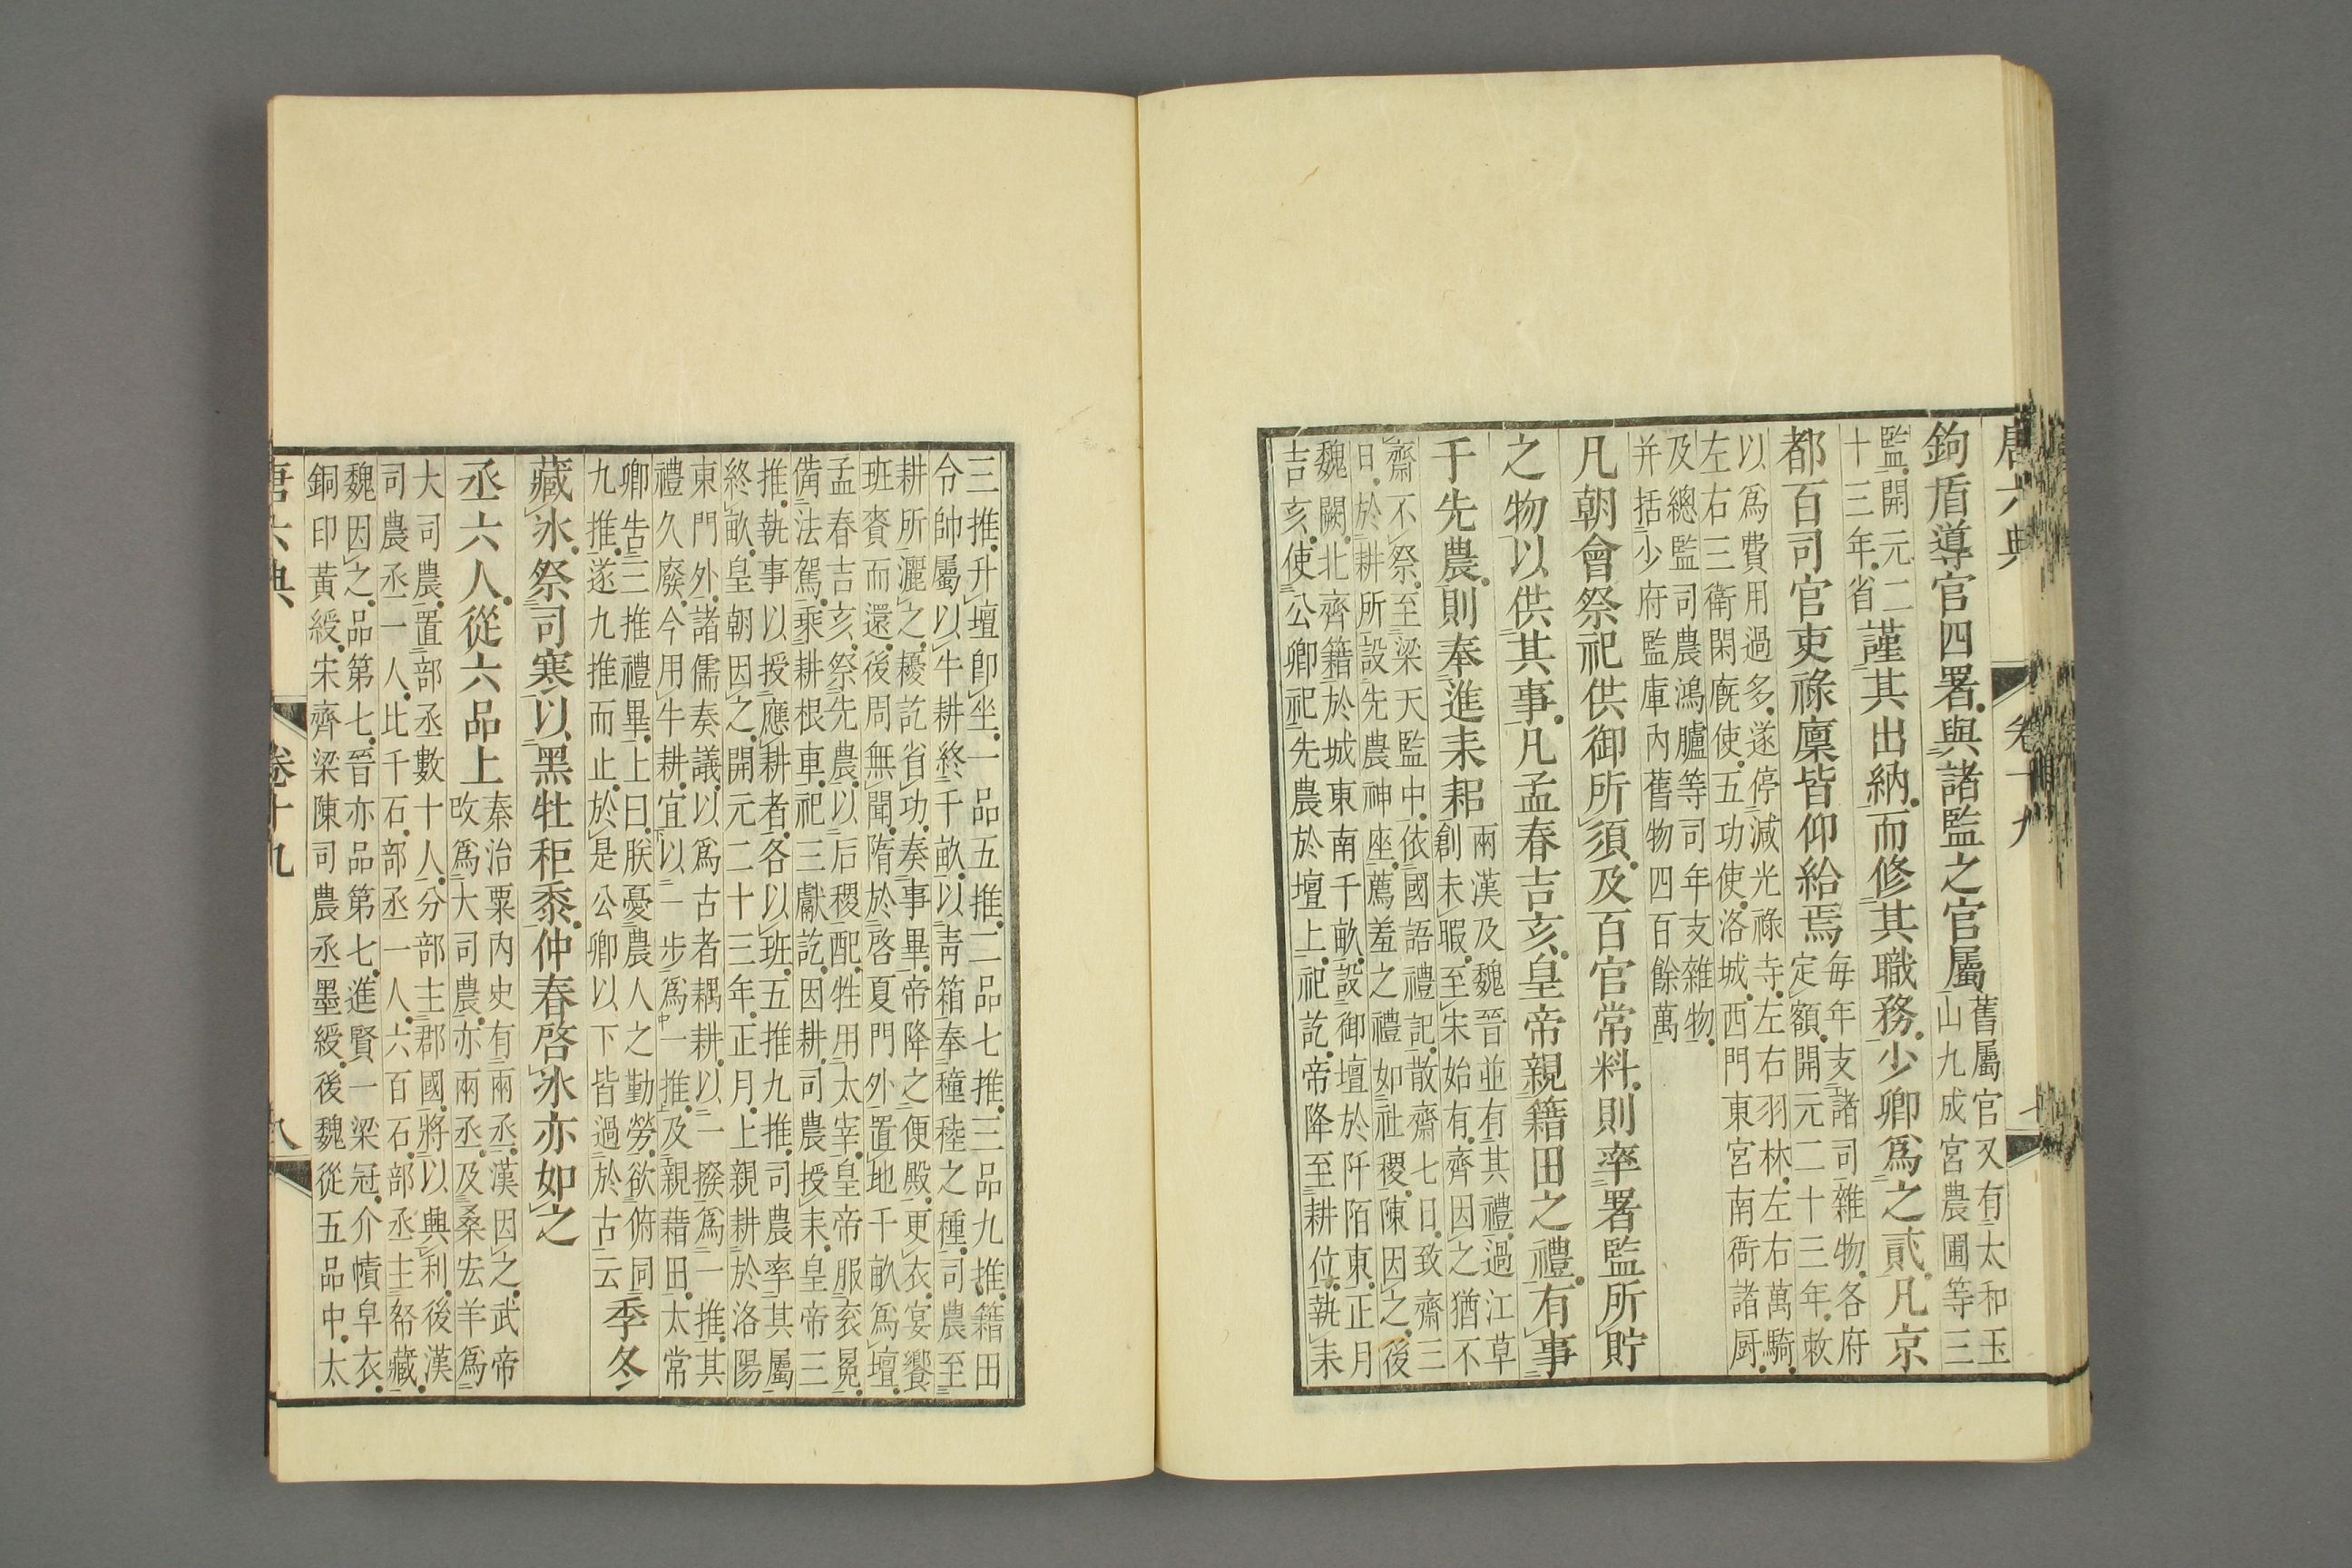 唐六典 卷十九
鉤盾導官四署與諸監之官屬
舊屬官又有太和玉
山九成宮農圃等三
監開元二
十三年省
謹其出納而修其職務少卿爲之貳凡京
都百司官吏祿廩皆仰給焉
每年支諸司雜物各府
定額開元二十三年敕
以爲費用過多遂停減光祿寺左右羽林左右萬騎
左右三衛閑廐使五功使洛城西門東宮南衙諸厨
及總監司農鴻臚等司年支雜物
并括少府監庫內舊物四百餘萬
凡朝會祭祀供御所須及百官常料則率署監所貯
之物以供其事凡孟春吉亥皇帝親籍田之禮有事
于先農則奉進耒耜
兩漢及魏晉並有其禮過江草
創未暇至宋始有齊因之猶不
齋不祭至梁天監中依國語禮記散齋七日致齋三
日於耕所設先農神座薦羞之禮如社稷陳因之後
魏闕北齊籍於城東南千畝設御壇於阡陌東正月
吉亥使公卿祀先農於壇上祀訖帝降至耕位執耒
三推升壇卽坐一品五推二品七推三品九推籍田
令帥屬以牛耕終千畝以靑箱奉穜稑之種司農至
耕所灑之耰訖省功奏事畢帝降之便殿更衣宴饗
班賚而還後周無聞隋於啓夏門外置地千畝爲壇
孟春吉亥祭先農以后稷配牲用太宰皇帝服袞冕
備法駕乘耕根車祀三獻訖因耕司農授耒皇帝三
推執事以授應耕者各以班五推九推司農率其屬
終畝皇朝因之開元二十三年正月上親耕於洛陽
東門外諸儒奏議以爲古者耦耕以一撥爲一推其
禮久廢今用牛耕宜以一步爲一推及親藉田太常
卿告三推禮畢上曰朕憂農人之勤勞欲俯同
九推遂九推而止於是公卿以下皆過於古云
季冬
藏冰祭司寒以黑牡秬黍仲春啓冰亦如之
丞六人從六品上
秦治粟內史有兩丞漢因之武帝
改爲大司農亦兩丞及桑宏羊爲
大司農置部丞數十人分部主郡國將以典利後漢
司農丞一人比千石部丞一人六百石部丞主帑藏
魏因之品第七晉亦品第七進賢一梁冠介幘皁衣
銅印黃綬宋齊梁陳司農丞墨綬後魏從五品中太
唐六典 卷十九 八